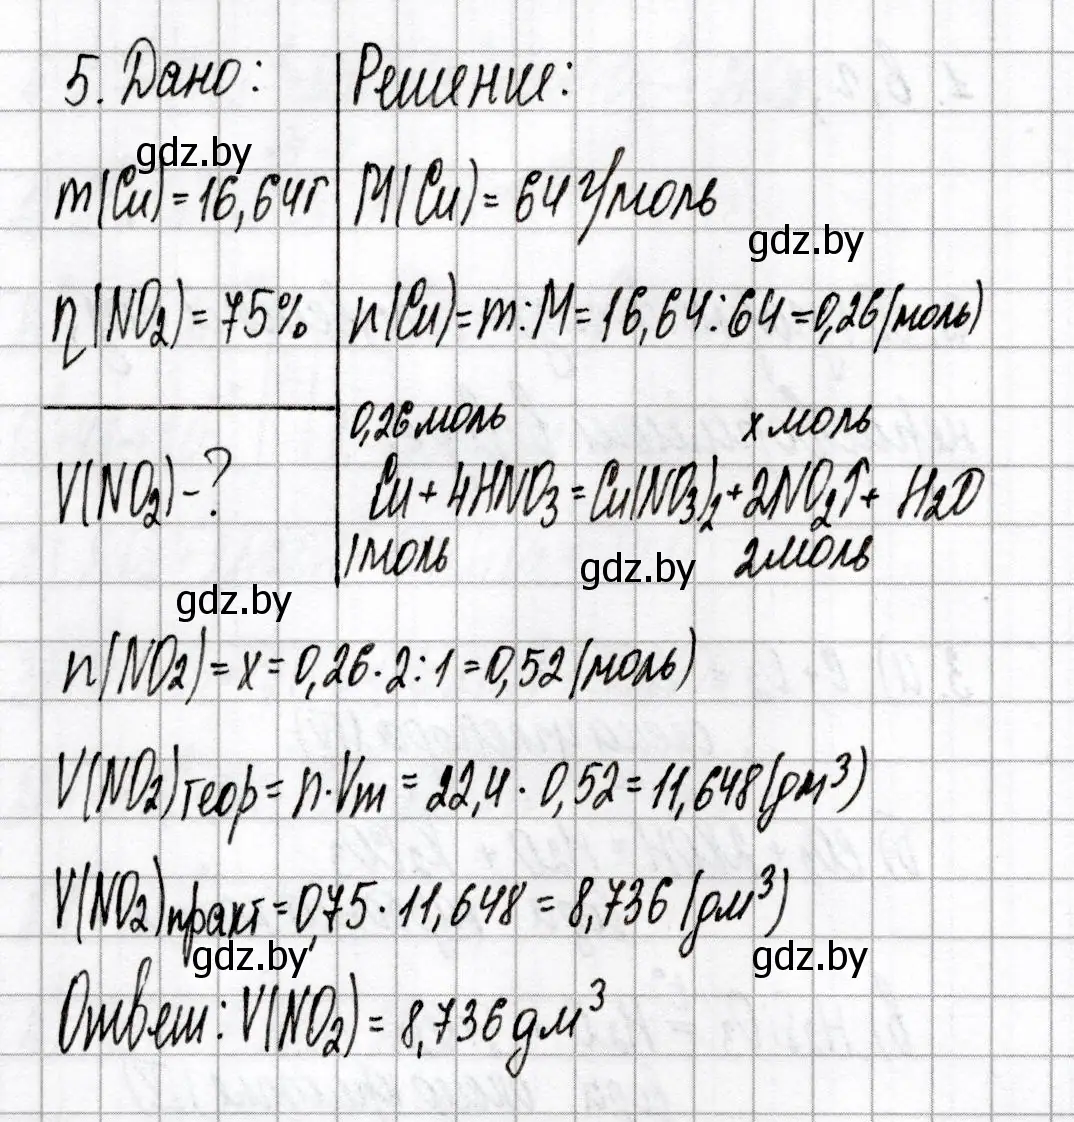 5. Дано:
gdz.by
m(Cu)=16,64г
η(NO2)=75%
V(NO2)-?
Решение:
M(Cu)=64г/моль
gdz.by
n(Cu)=m:M=16,64:64=0,26(моль)
0,26моль x моль
Cu+4HNO3=Cu(NO3)2+2NO2↑+ H2O
1моль gdz.by 2моль
gdz.by
n(NO2)=x=0,26·2:1=0,52(моль)
V(NO2)теор=n·Vm=22,4·0,52=11,648(дм³)
V(NO2)практ=0,75·11,648=8,736(дм³)
gdz.by gdz.by
Ответ: V(NO2)=8,736дм³